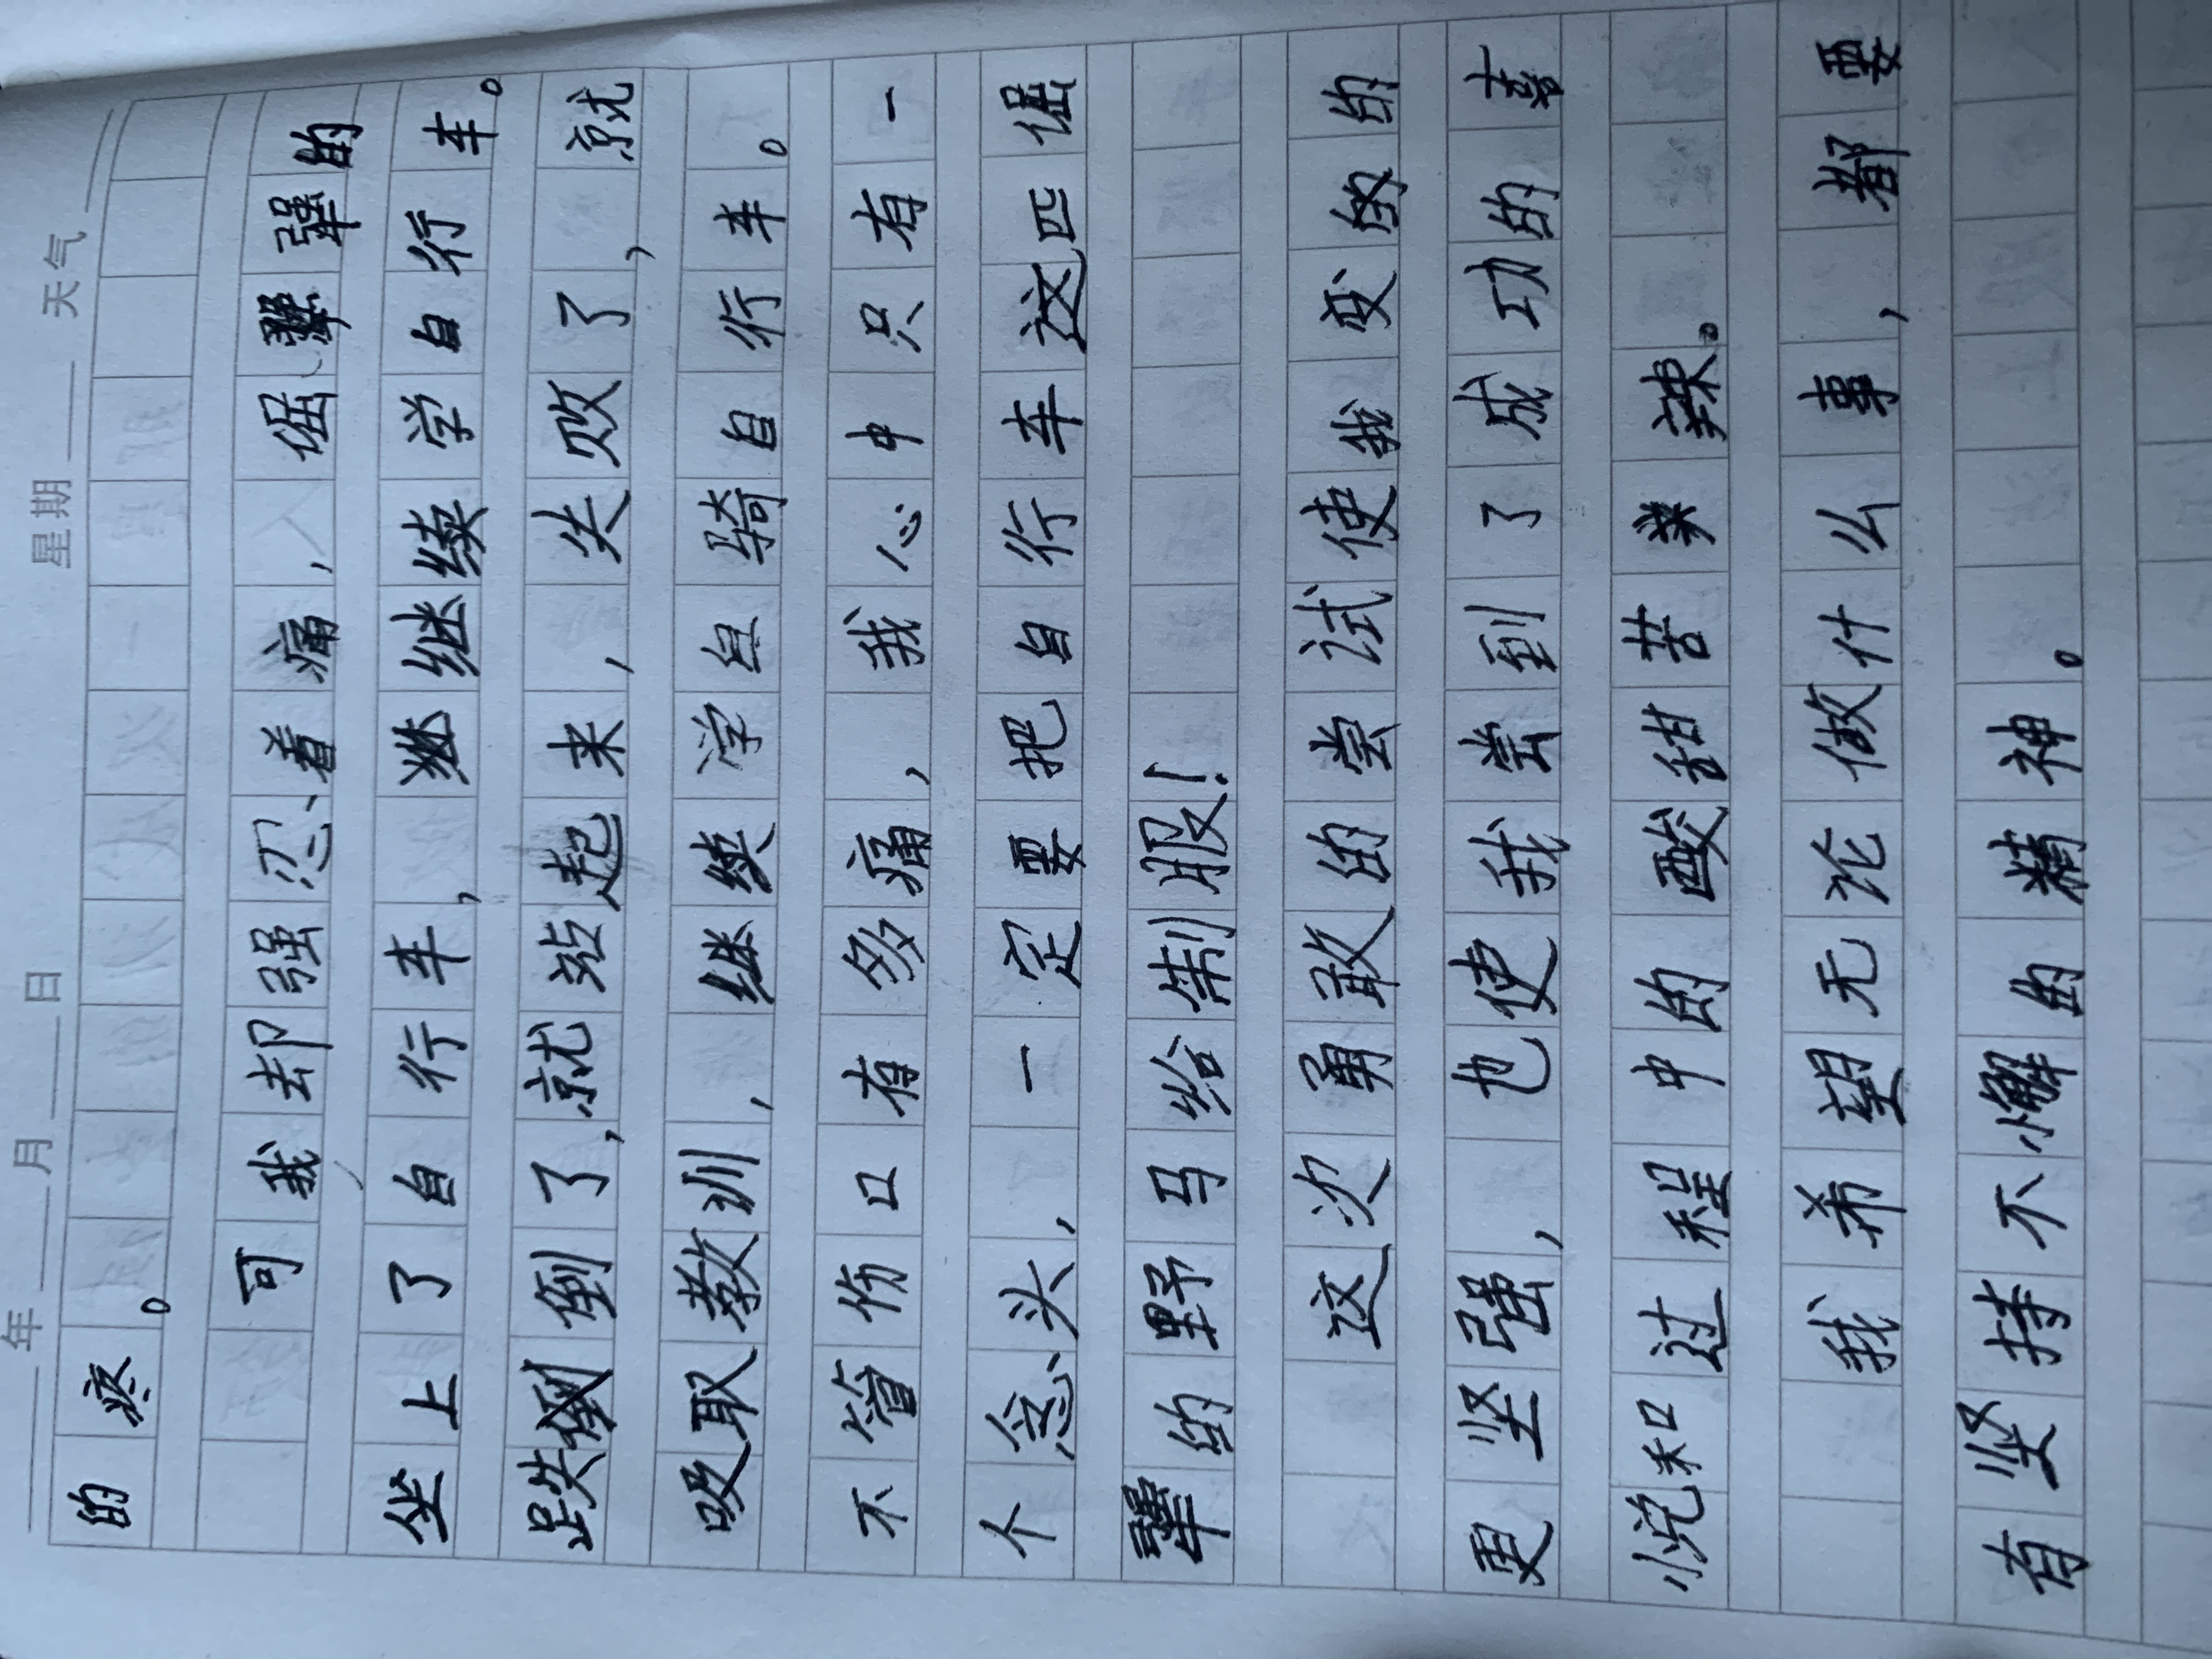 年 月 日 星期 天气
的疼。
可我却强忍着痛,倔犟的
坐上了自行车,继续学自行车。
跌倒了,就站起来,失败了,就
吸取教训,继续学自骑自行车。
不管伤口有多痛,我心中只有一
个念头,一定要把自行车这匹倔
犟的野马给制服!
这次勇敢的尝试使我变的的
更坚强,也使我尝到了成功的喜
悦和过程中的酸甜苦辣。
我希望无论做什么事,都要
有坚持不懈的精神。